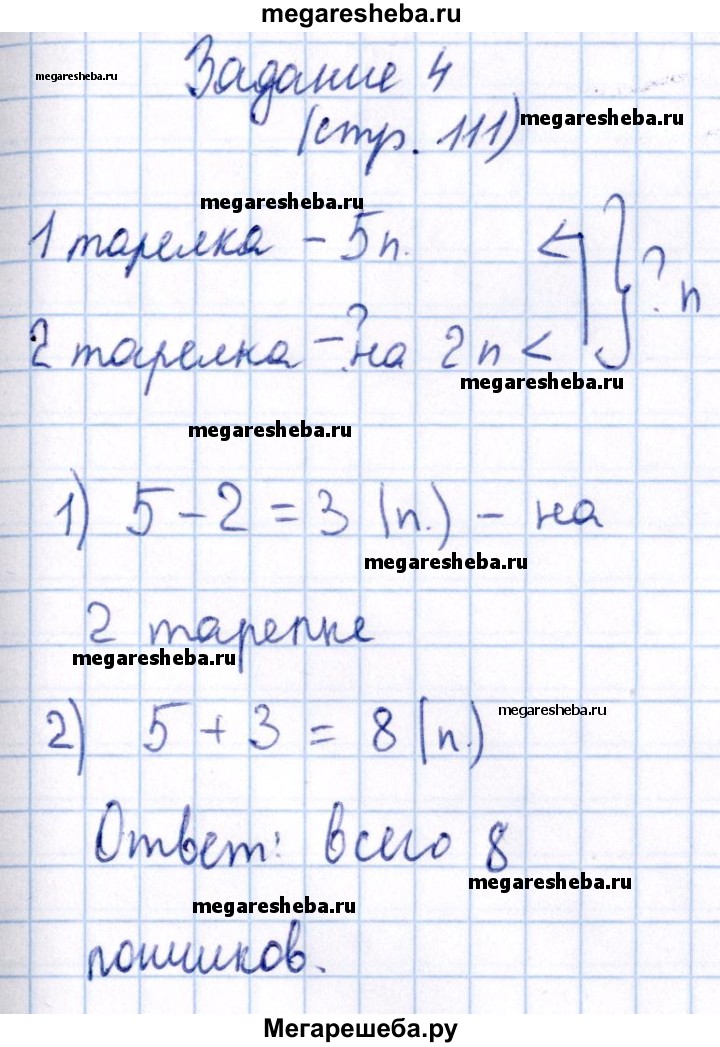 megaresheba.ru
Задание 4
megaresheba.ru
(стр. 111)
megaresheba.ru
megaresheba.ru
1 тарелка - 5п. <
} ? п
2 тарелка - ? на 2п <
megaresheba.ru
megaresheba.ru
1) 5 - 2 = 3 (п.) - на
megaresheba.ru
2 тарелке
megaresheba.ru
2) 5 + 3 = 8 (п.)
megaresheba.ru
Ответ: всего 8
megaresheba.ru
megaresheba.ru
пончиков.
Мегарешеба.ру